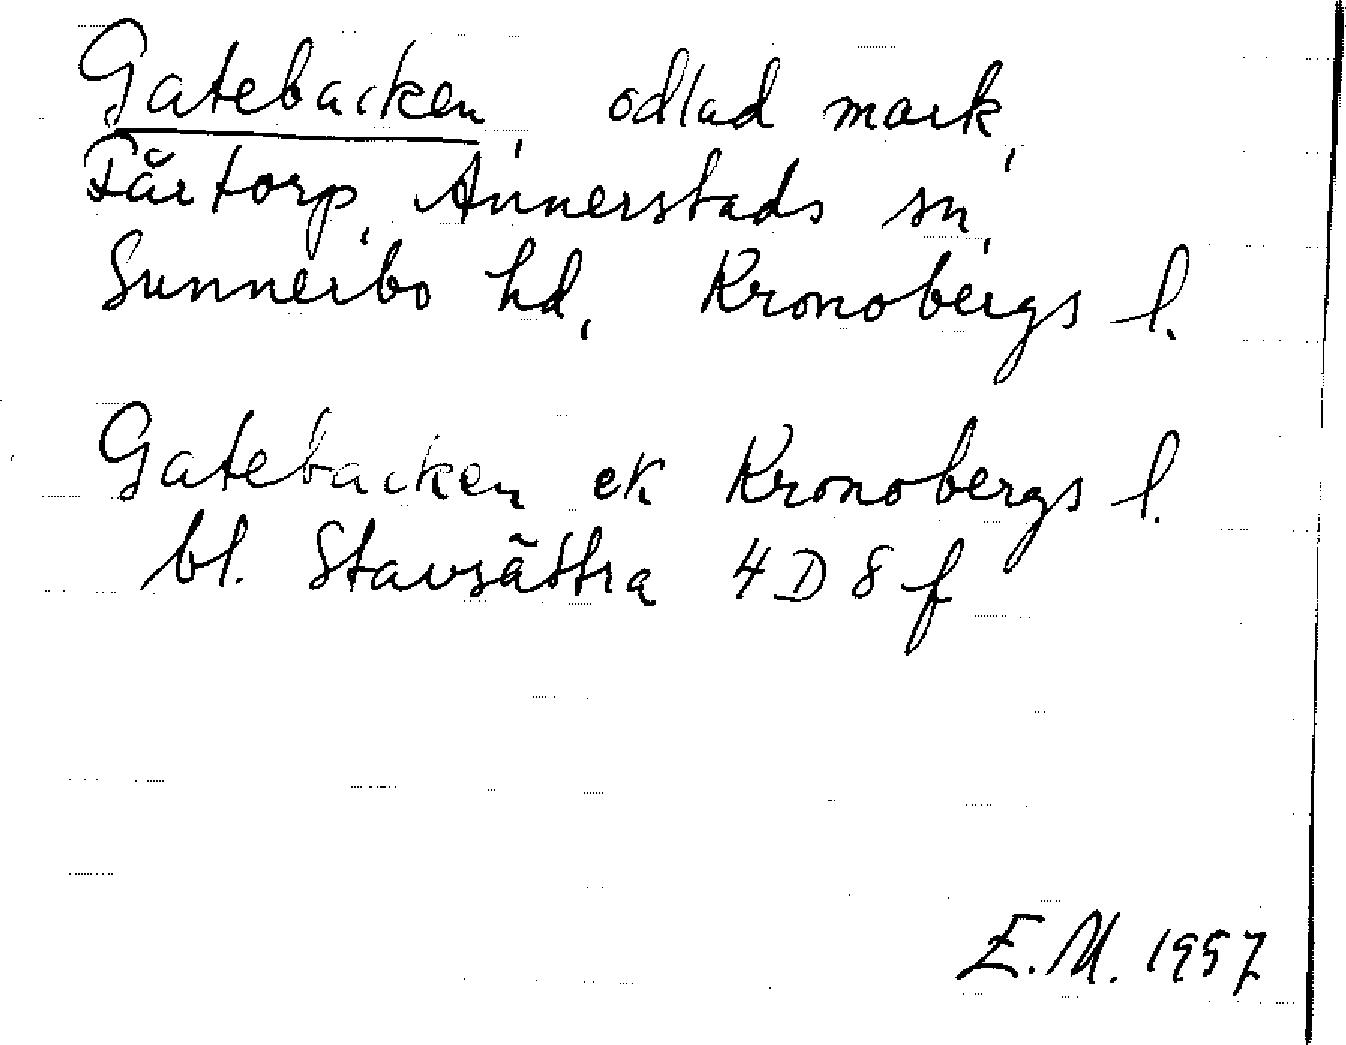 Gatebacken, odlad mark,
Fårtorp, Annerstads sn,
Sunnerbo hd, Kronobergs l.
Gatebacken ek Kronobergs l.
bl. Stavsättra 4D8f
E.M. 1957